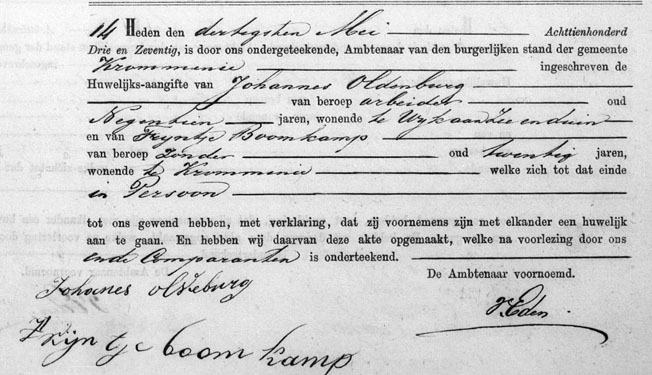 14 Heden den dertigsten Mei Achttienhonderd
Drie en Zeventig, is door ons ondergeteekende, Ambtenaar van den burgerlijken stand der gemeente
Krommenie ingeschreven de
Huwelijks-aangifte van Johannes Oldenburg
van beroep arbeider oud
Negentien jaren, wonende te Wyk aan Zee en duin
en van Tryntje Boomkamp
van beroep Zonder oud twentig jaren,
wonende te Krommenie welke zich tot dat einde
in Persoon
tot ons gewend hebben, met verklaring, dat zij voornemens zijn met elkander een huwelijk
aan te gaan. En hebben wij daarvan deze akte opgemaakt, welke na voorlezing door ons
ende Comparanten is onderteekend.
De Ambtenaar voornoemd.
Johanes oldeburg
Trijntje boomkamp